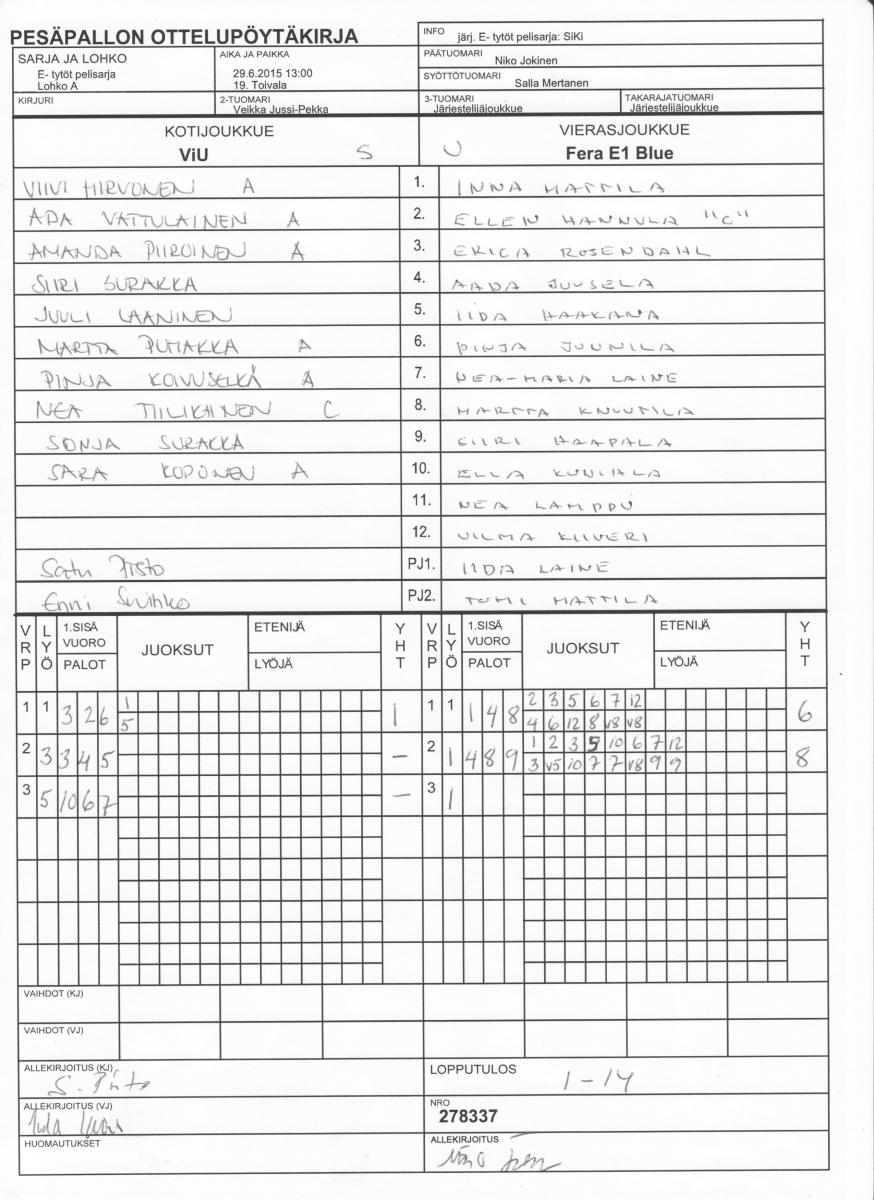 PESÄPALLON OTTELUPÖYTÄKIRJA
INFO järj. E- tytöt pelisarja: SiKi
PÄÄTUOMARI
Niko Jokinen
SARJA JA LOHKO
E- tytöt pelisarja
Lohko A
AIKA JA PAIKKA
29.6.2015 13:00
19. Toivala
SYÖTTÖTUOMARI
Salla Mertanen
KIRJURI
2-TUOMARI
Veikka Jussi-Pekka
3-TUOMARI
Järjestelijäjoukkue
TAKARAJATUOMARI
Järjestelijäjoukkue
KOTIJOUKKUE
ViU S
VIERASJOUKKUE
U Fera E1 Blue
VIIVI HIRVONEN A 1. INNA MATTILA
ADA VATTULAINEN A 2. ELLEN HANNULA "C"
AMANDA PIIROINEN A 3. ERICA ROSENDAHL
SIIRI SURAKKA 4. AADA JUUSELA
JUULI LAANINEN 5. IIDA HAAKANA
MARTTA PUTIAKKA A 6. PINJA JUUNILA
PINJA KOIVUSELKÄ A 7. NEA-MARIA LAINE
NEA TIILIKAINEN C 8. MARTTA KNUUTILA
SONJA SURAKKA 9. SIIRI HAAPALA
SARA KOPONEN A 10. ELLA
11. NEA LAMPPU
12. VILMA KIIVERI
Satu PJ1. IIDA LAINE
Enni PJ2. TOMI MATTILA
VRP LYÖ 1.SISÄ VUORO PALOT JUOKSUT ETENIJÄ LYÖJÄ YHT VRP LYÖ 1.SISÄ VUORO PALOT JUOKSUT ETENIJÄ LYÖJÄ YHT
1 1 3 2 6 1 1 1 1 1 4 8 2 3 5 6 7 12 6
5 4 6 12 8 v8 v8
2 3 3 4 5 – 2 1 4 8 9 1 2 3 5 10 6 7 12 8
3 v5 10 7 7 v8 9 9
3 5 10 6 7 – 3 1
VAIHDOT (KJ)
VAIHDOT (VJ)
ALLEKIRJOITUS (KJ)
LOPPUTULOS 1-14
ALLEKIRJOITUS (VJ)
NRO
278337
HUOMAUTUKSET
ALLEKIRJOITUS